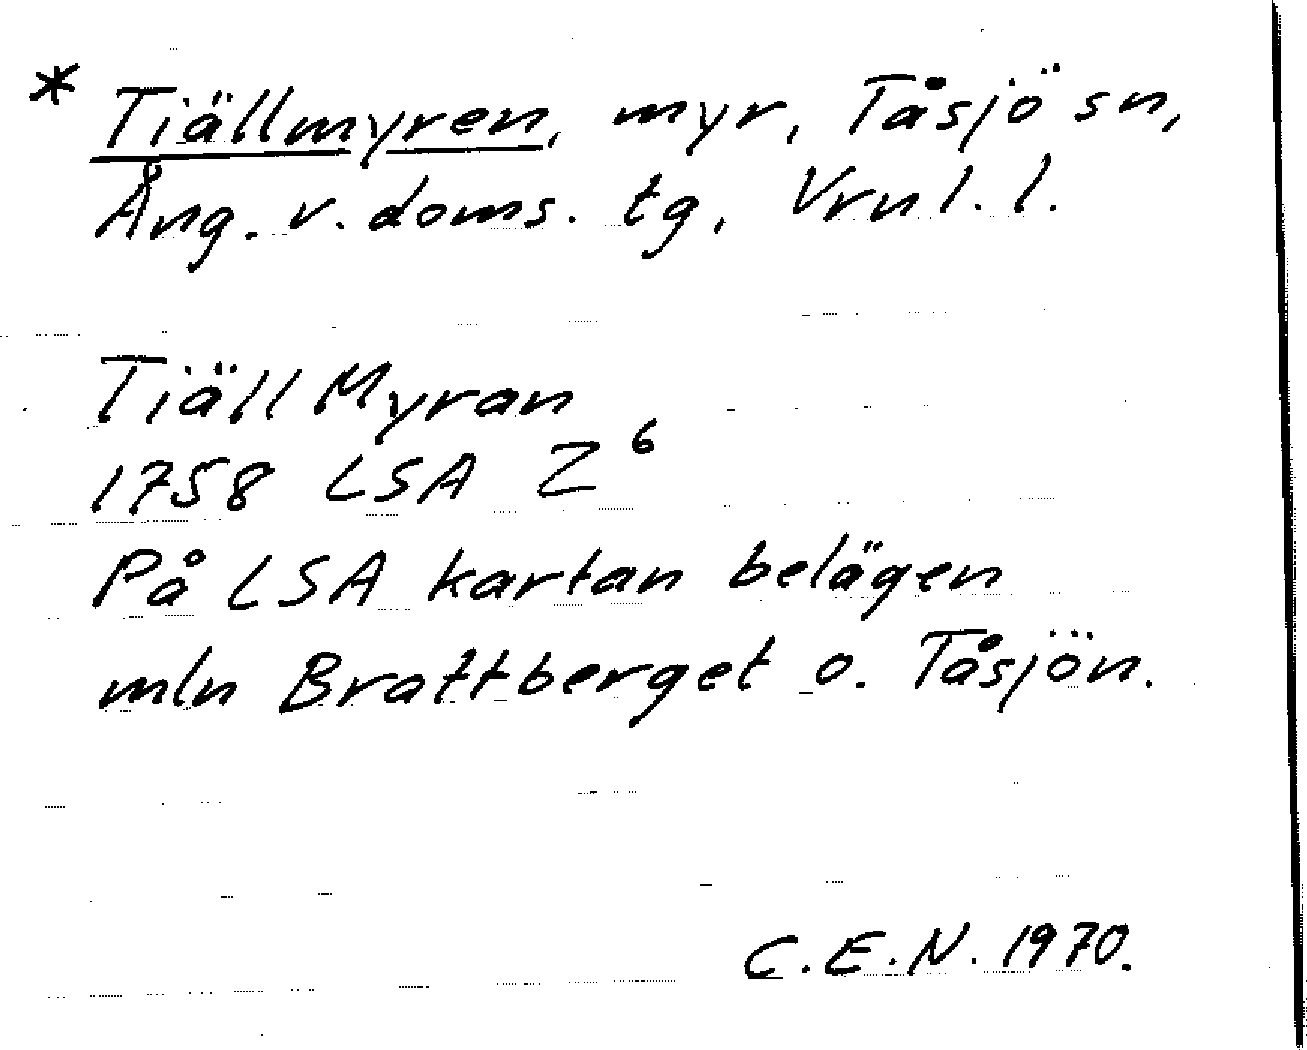 * Tiällmyren, myr, Tåsjö sn,
Ång. v. doms. tg, Vrnl. l.
Tiäll Myran
1758 LSA Z⁶
På LSA kartan belägen
mln Brattberget o. Tåsjön.
C.E.N. 1970.